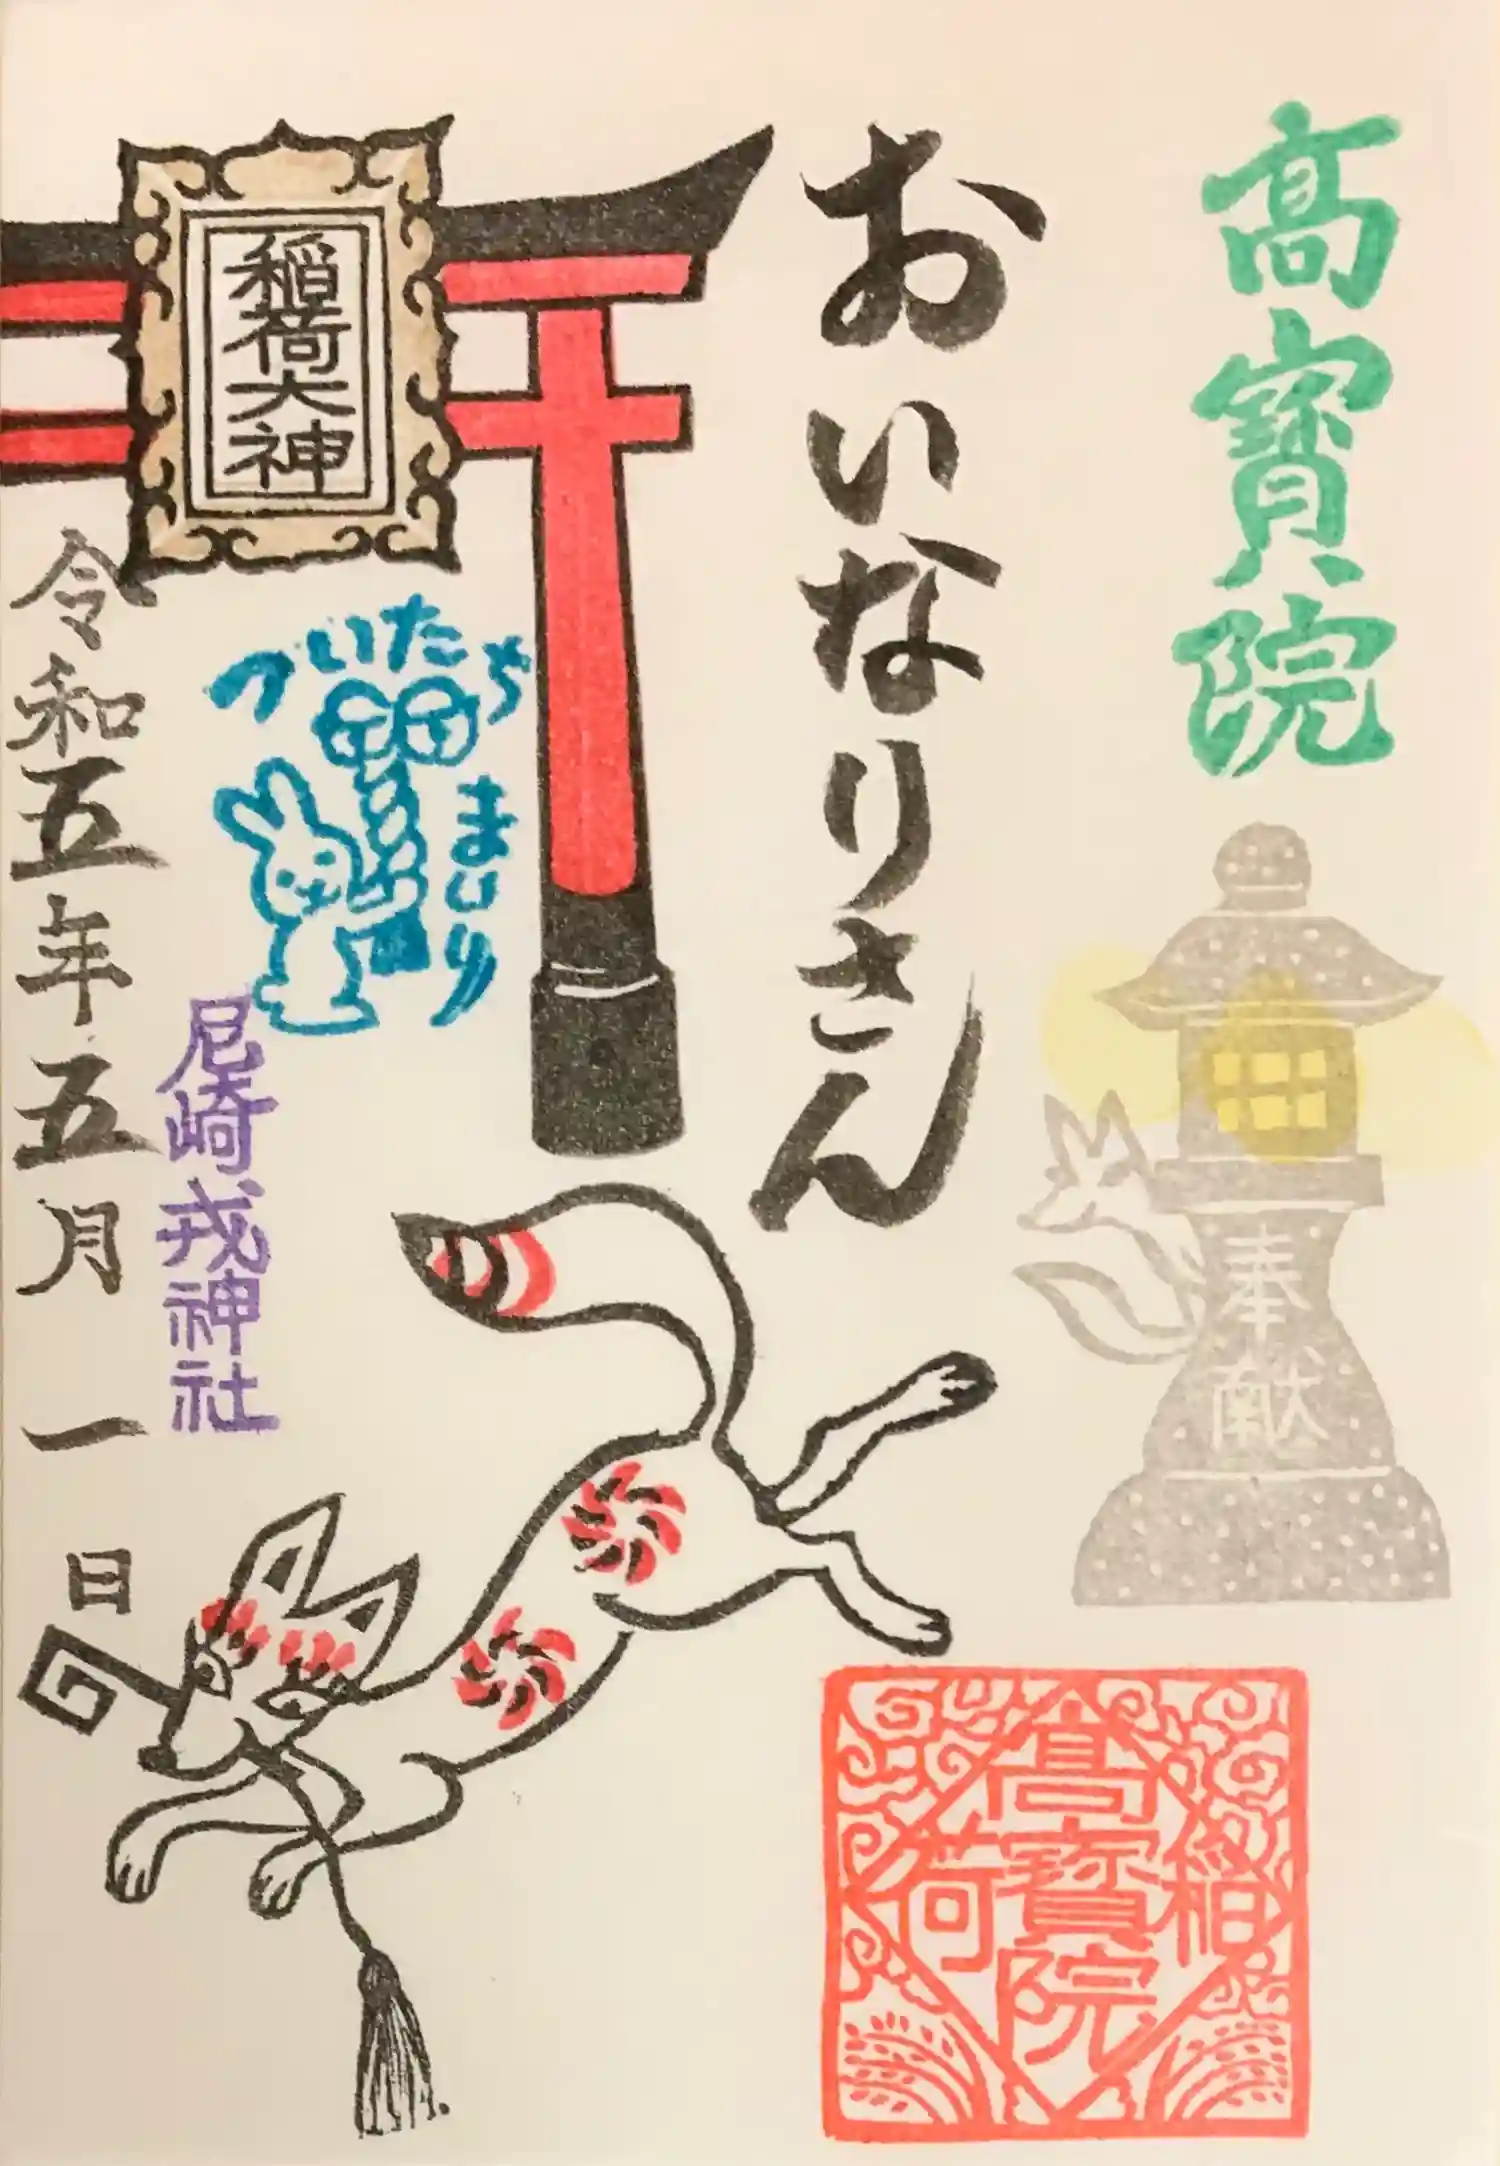 高寳院
おいなりさん
稲荷大神
ついたち
まいり
尼崎戎神社
令和五年五月一日
奉献
稲
高寳院
荷